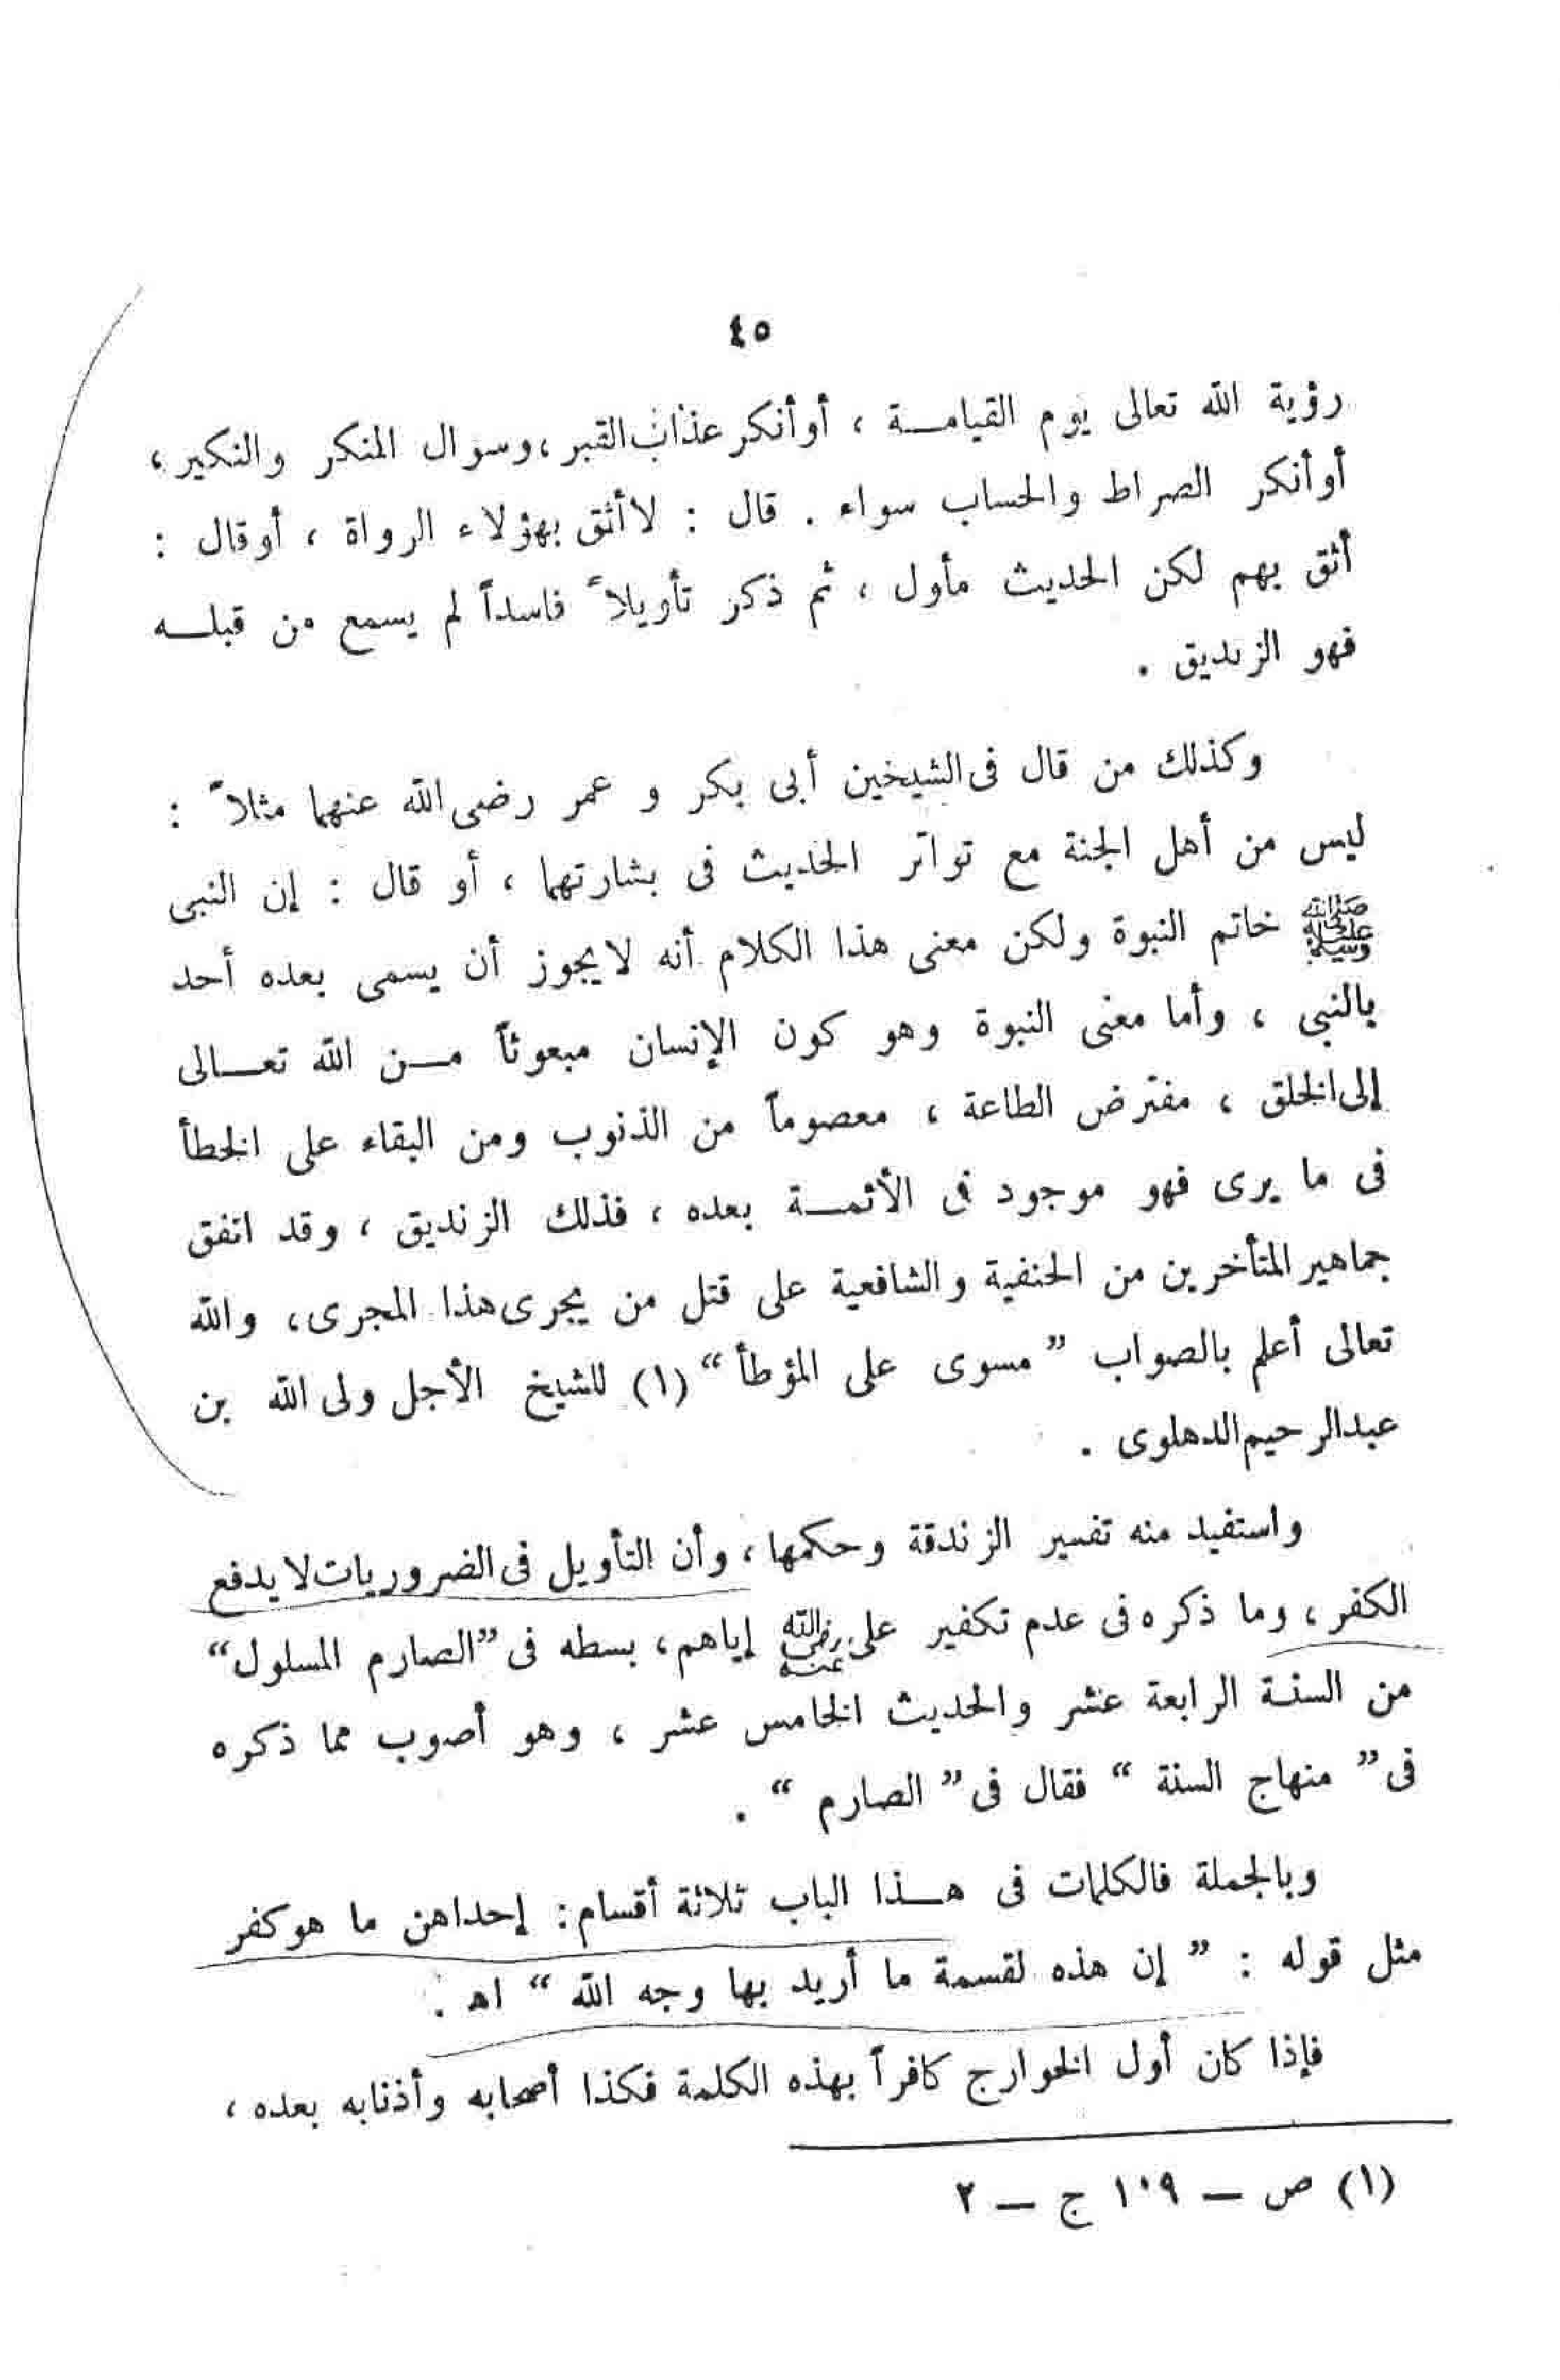 ٤٥
رؤية الله تعالى يوم القيامـــة ، أوأنكر عذاب القبر ، وسوال المنكر والنكير ،
أوأنكر الصراط والحساب سواء . قال : لاأثق بهؤلاء الرواة ، أوقال :
أثق بهم لكن الحديث مأول ، ثم ذكر تأويلاً فاسداً لم يسمع من قبلـــه
فهو الزنديق .
وكذلك من قال فى الشيخين أبى بكر و عمر رضى الله عنهما مثلاً :
ليس من أهل الجنة مع تواتر الحديث فى بشارتهما ، أو قال : إن النبى
ﷺ خاتم النبوة ولكن معنى هذا الكلام أنه لايجوز أن يسمى بعده أحد
بالنبى ، وأما معنى النبوة وهو كون الإنسان مبعوثاً مـــن الله تعـــالى
إلى الخلق ، مفترض الطاعة ، معصوماً من الذنوب ومن البقاء على الخطأ
فى ما يرى فهو موجود فى الأئمـــة بعده ، فذلك الزنديق ، وقد اتفق
جماهير المتأخرين من الحنفية والشافعية على قتل من يجرى هذا المجرى ، والله
تعالى أعلم بالصواب ”مسوى على المؤطأ“ (١) للشيخ الأجل ولى الله بن
عبدالرحيم الدهلوى .
واستفيد منه تفسير الزندقة وحكمها ، وأن التأويل فى الضروريات لا يدفع
الكفر ، وما ذكره فى عدم تكفير على رضي الله عنه إياهم ، بسطه فى ”الصارم المسلول“
من السنة الرابعة عشر والحديث الخامس عشر ، وهو أصوب مما ذكره
فى ” منهاج السنة “ فقال فى ” الصارم “ .
وبالجملة فالكلمات فى هـــذا الباب ثلاثة أقسام : إحداهن ما هوكفر
مثل قوله : ” إن هذه لقسمة ما أريد بها وجه الله “ اه .
فإذا كان أول الخوارج كافراً بهذه الكلمة فكذا أصحابه وأذنابه بعده ،
(١) ص — ١٠٩ ج — ٢